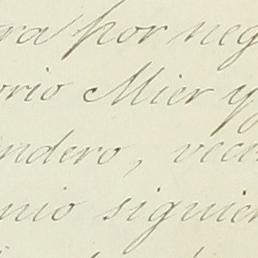 ra por neg
orio Mier y
ndero, vec
nio siguien